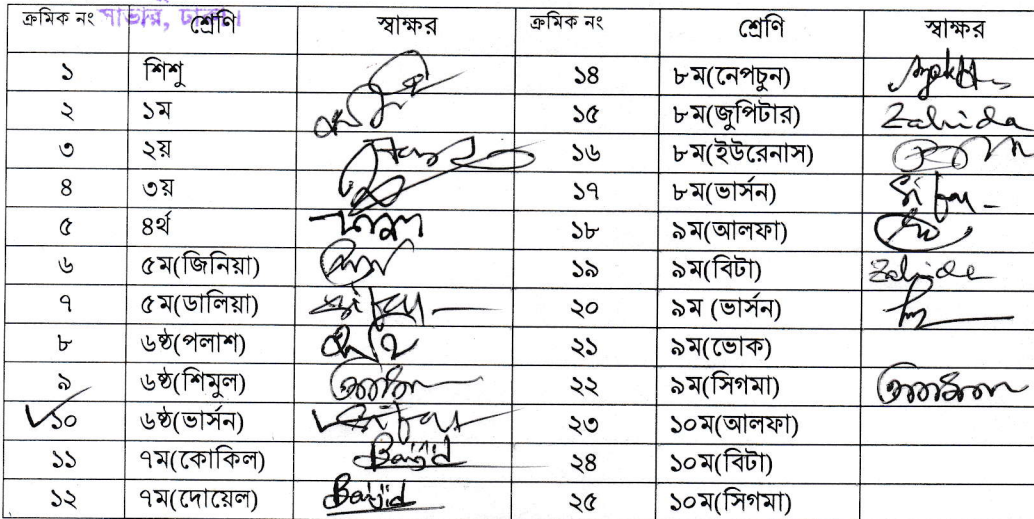 সাভার, ঢাকা।
ক্রমিক নং শ্রেণি স্বাক্ষর ক্রমিক নং শ্রেণি স্বাক্ষর
১ শিশু ১৪ ৮ম(নেপচুন)
২ ১ম ১৫ ৮ম(জুপিটার) Zahida
৩ ২য় ১৬ ৮ম(ইউরেনাস)
৪ ৩য় ১৭ ৮ম(ভার্সন)
৫ ৪র্থ ১৮ ৯ম(আলফা)
৬ ৫ম(জিনিয়া) ১৯ ৯ম(বিটা) Zahida
৭ ৫ম(ডালিয়া) ২০ ৯ম (ভার্সন)
৮ ৬ষ্ঠ(পলাশ) ২১ ৯ম(ভোক)
৯ ৬ষ্ঠ(শিমুল) ২২ ৯ম(সিগমা)
১০ ৬ষ্ঠ(ভার্সন) ২৩ ১০ম(আলফা)
১১ ৭ম(কোকিল) Baijid ২৪ ১০ম(বিটা)
১২ ৭ম(দোয়েল) Baijid ২৫ ১০ম(সিগমা)